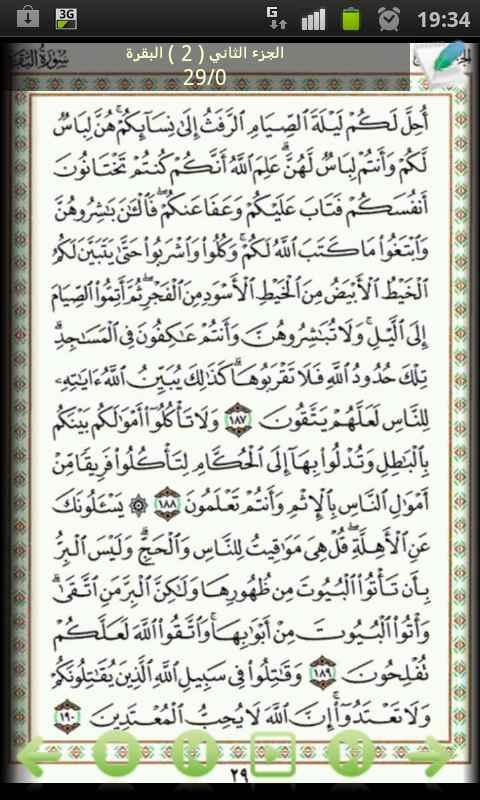 3G
19:34
الجزء الثاني ( 2 ) البقرة
29/0
سورة البقرة
أُحِلَّ لَكُمْ لَيْلَةَ ٱلصِّيَامِ ٱلرَّفَثُ إِلَىٰ نِسَآئِكُمْ ۚ هُنَّ لِبَاسٌ
لَّكُمْ وَأَنتُمْ لِبَاسٌ لَّهُنَّ ۗ عَلِمَ ٱللَّهُ أَنَّكُمْ كُنتُمْ تَخْتَانُونَ
أَنفُسَكُمْ فَتَابَ عَلَيْكُمْ وَعَفَا عَنكُمْ ۖ فَٱلْـَٰٔنَ بَٰشِرُوهُنَّ
وَٱبْتَغُوا۟ مَا كَتَبَ ٱللَّهُ لَكُمْ ۚ وَكُلُوا۟ وَٱشْرَبُوا۟ حَتَّىٰ يَتَبَيَّنَ لَكُمُ
ٱلْخَيْطُ ٱلْأَبْيَضُ مِنَ ٱلْخَيْطِ ٱلْأَسْوَدِ مِنَ ٱلْفَجْرِ ۖ ثُمَّ أَتِمُّوا۟ ٱلصِّيَامَ
إِلَى ٱلَّيْلِ ۚ وَلَا تُبَٰشِرُوهُنَّ وَأَنتُمْ عَٰكِفُونَ فِى ٱلْمَسَٰجِدِ ۗ
تِلْكَ حُدُودُ ٱللَّهِ فَلَا تَقْرَبُوهَا ۗ كَذَٰلِكَ يُبَيِّنُ ٱللَّهُ ءَايَٰتِهِۦ
لِلنَّاسِ لَعَلَّهُمْ يَتَّقُونَ ١٨٧ وَلَا تَأْكُلُوٓا۟ أَمْوَٰلَكُم بَيْنَكُم
بِٱلْبَٰطِلِ وَتُدْلُوا۟ بِهَآ إِلَى ٱلْحُكَّامِ لِتَأْكُلُوا۟ فَرِيقًا مِّنْ
أَمْوَٰلِ ٱلنَّاسِ بِٱلْإِثْمِ وَأَنتُمْ تَعْلَمُونَ ١٨٨ ۞ يَسْـَٔلُونَكَ
عَنِ ٱلْأَهِلَّةِ ۖ قُلْ هِىَ مَوَٰقِيتُ لِلنَّاسِ وَٱلْحَجِّ ۗ وَلَيْسَ ٱلْبِرُّ
بِأَن تَأْتُوا۟ ٱلْبُيُوتَ مِن ظُهُورِهَا وَلَٰكِنَّ ٱلْبِرَّ مَنِ ٱتَّقَىٰ ۗ
وَأْتُوا۟ ٱلْبُيُوتَ مِنْ أَبْوَٰبِهَا ۚ وَٱتَّقُوا۟ ٱللَّهَ لَعَلَّكُمْ
تُفْلِحُونَ ١٨٩ وَقَٰتِلُوا۟ فِى سَبِيلِ ٱللَّهِ ٱلَّذِينَ يُقَٰتِلُونَكُمْ
وَلَا تَعْتَدُوٓا۟ ۚ إِنَّ ٱللَّهَ لَا يُحِبُّ ٱلْمُعْتَدِينَ ١٩٠
٢٩